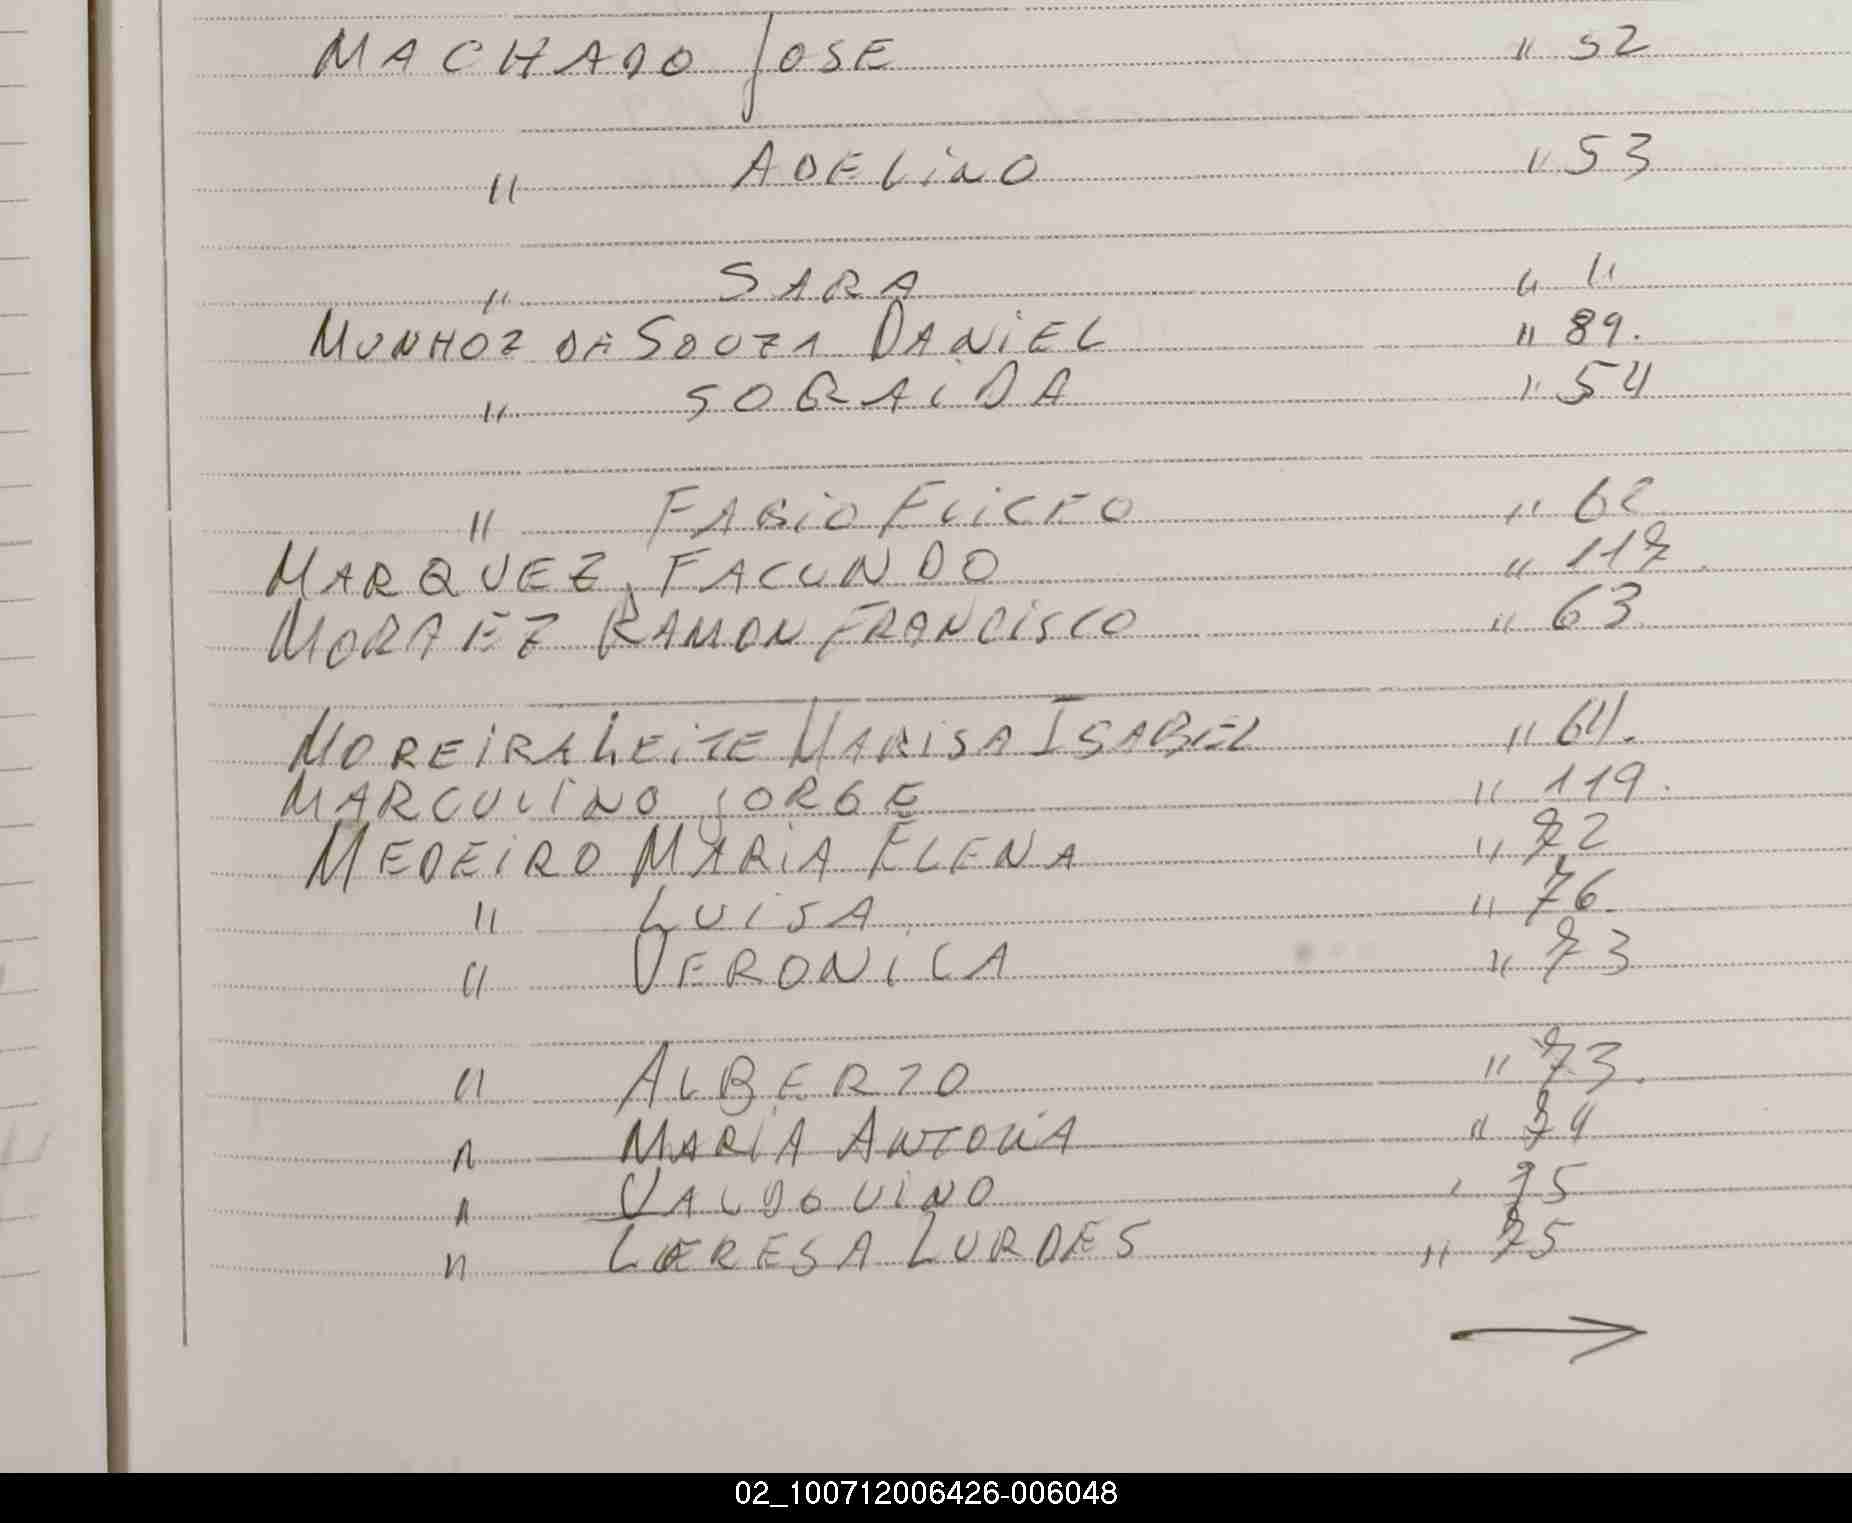 MACHADO JOSE " 52
" ADELINO " 53
" SARA " "
MUNHOZ DA SOUZA DANIEL " 89.
" SORAIDA " 54
" FABIO ELICEO " 62
MARQUEZ, FACUNDO " 117.
MORAEZ RAMON FRANCISCO " 63
MOREIRA LEITE MARISA ISABEL " 64.
MARCULINO JORGE " 119.
MEDEIRO MARIA ELENA " 72
" LUISA " 76.
" VERONICA " 73
" ALBERTO " 73.
" MARIA ANTONIA " 74
" VALDOVINO " 75
" TERESA LURDES " 75
→
02_100712006426-006048